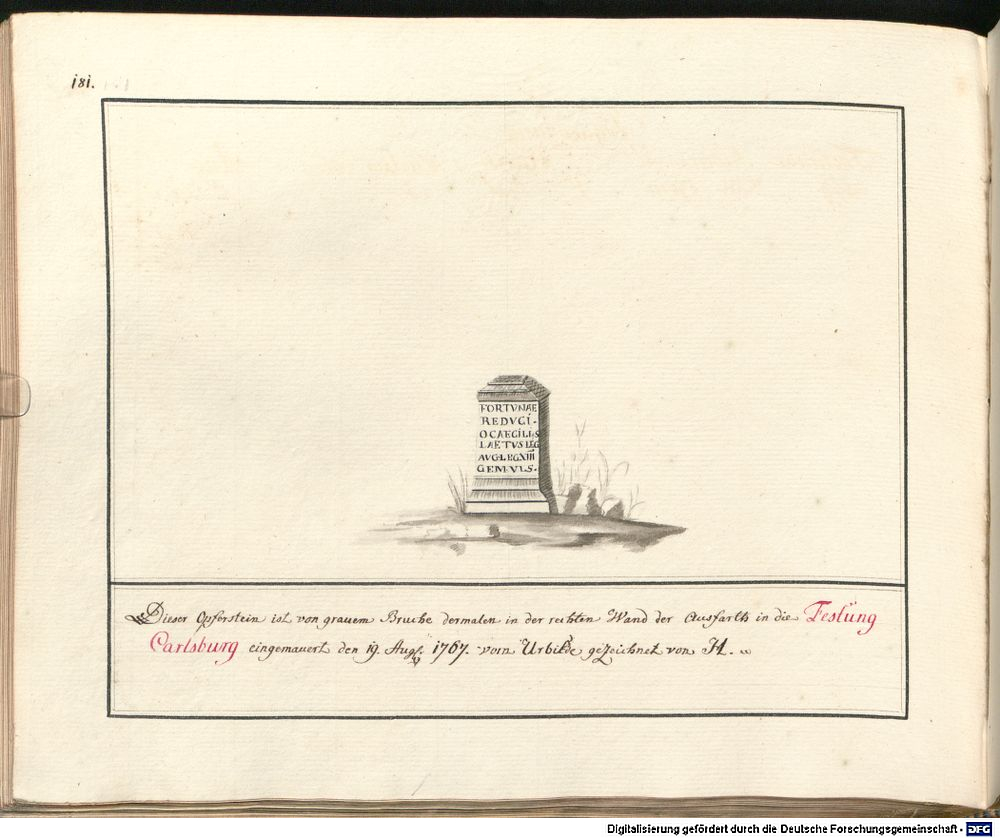 181.
FORTVNAE
REDVCI.
Q CAECILIS
LAETVS LEG
AVG LEG XIII
GEM V L S.
Dieser Opferstein ist von grauem Bruche dermalen in der rechten Wand der Ausfarth in die Festüng
Carlsburg eingemauert den 19. Aug. 1767. vom Urbilde gezeichnet von H.
Digitalisierung gefördert durch die Deutsche Forschungsgemeinschaft - DFG